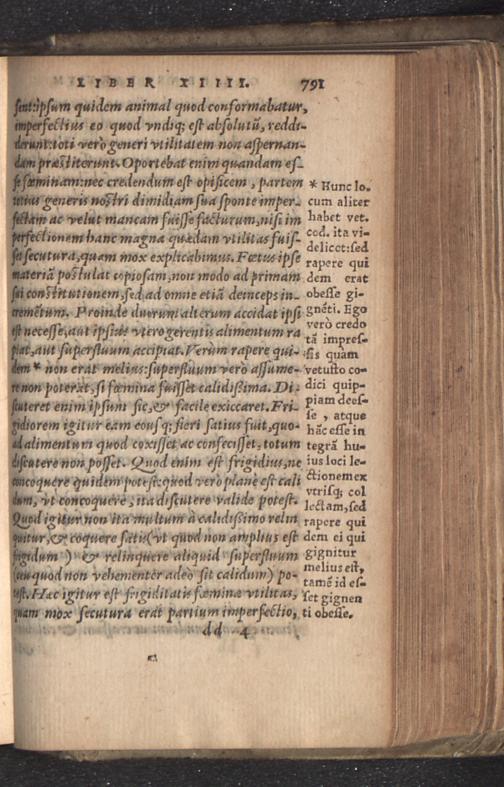 LIBER XIIII. 791
sent: ipsum quidem animal quod conformabatur,
imperfectius eo quod vndiq; est absolutũ, reddi-
derunt: toti verò generi vtilitatem non aspernan-
dam præstiterunt. Oportebat enim quandam es-
se fœminam: nec credendum est opificem, partem
totius generis nostri dimidiam sua sponte imper-
fectam ac velut mancam fuisse facturum, nisi im
perfectionem hanc magna quædam vtilitas fuis-
set secutura, quam mox explicabimus. Fœtus ipse
materiã postulat copiosam, non modo ad primam
sui constitutionem, sed ad omne etiã deinceps in-
cremẽtum. Proinde duorum alterum accidat ipsi
est necesse, aut ipsius vterogerentis alimentum ra
piat, aut superfluum accipiat. Verùm rapere qui-
dem * non erat melius: superfluum verò assume-
re non poterat, si fœmina fuisset calidißima. Di-
scuteret enim ipsum sic, & facile exiccaret. Fri-
gidiorem igitur eam eousq; fieri satius fuit, quo-
ad alimentum quod coxisset ac confecisset, totum
discutere non posset. Quod enim est frigidius, ne
concoquere quidem potest: quod verò planè est cali
dum, vt concoquere, ita discutere valide potest.
Quod igitur non ita multum à calidißimo relin
quitur, & coquere satis (vt quod non amplius est
frigidum) & relinquere aliquid superfluum
(vt quod non vehementer adeò sit calidum) po-
test. Hæc igitur est frigiditatis fœminæ vtilitas,
quam mox secutura erat partium imperfectio,
dd 4
* Hunc lo.
cum aliter
habet vet.
cod. ita vi-
delicet: sed
rapere qui
dem erat
obesse gi-
gnẽti. Ego
verò credo
tã impres-
sis quàm
vetusto co-
dici quip-
piam dees-
se, atque
hãc esse in
tegrã hu-
ius loci le-
ctionem ex
vtrisq; col
lectam, sed
rapere qui
dem ei qui
gignitur
melius est,
tamẽ id es-
set gignen
ti obesse.